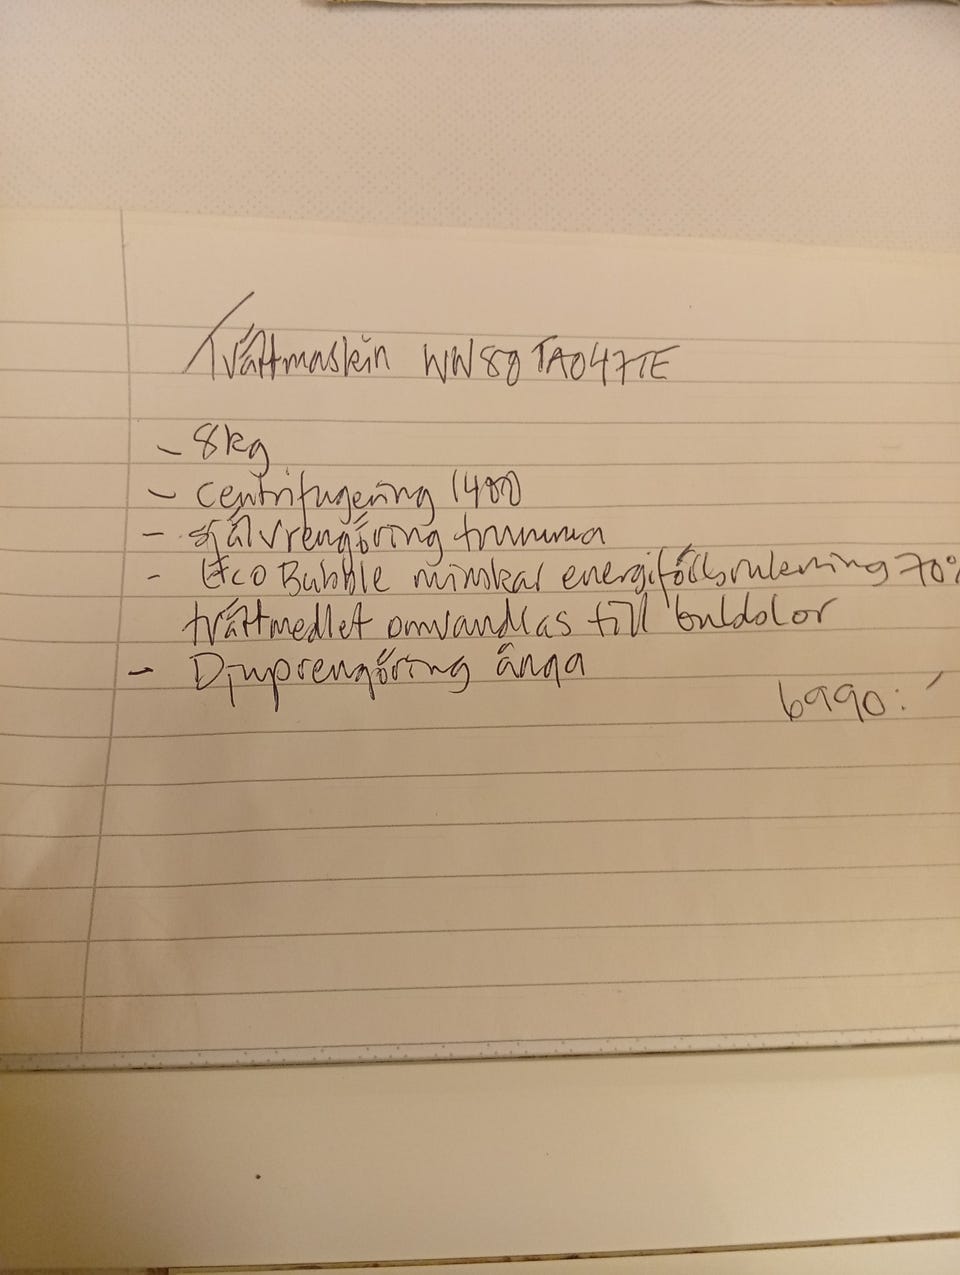 Tvättmaskin WW80TA047TE
- 8kg
- centrifugering 1400
- självrengöring trumma
- Eco Bubble minskar energiförbrukning 70%
tvättmedlet omvandlas till bubblor
- Djuprengöring ånga
6990:-